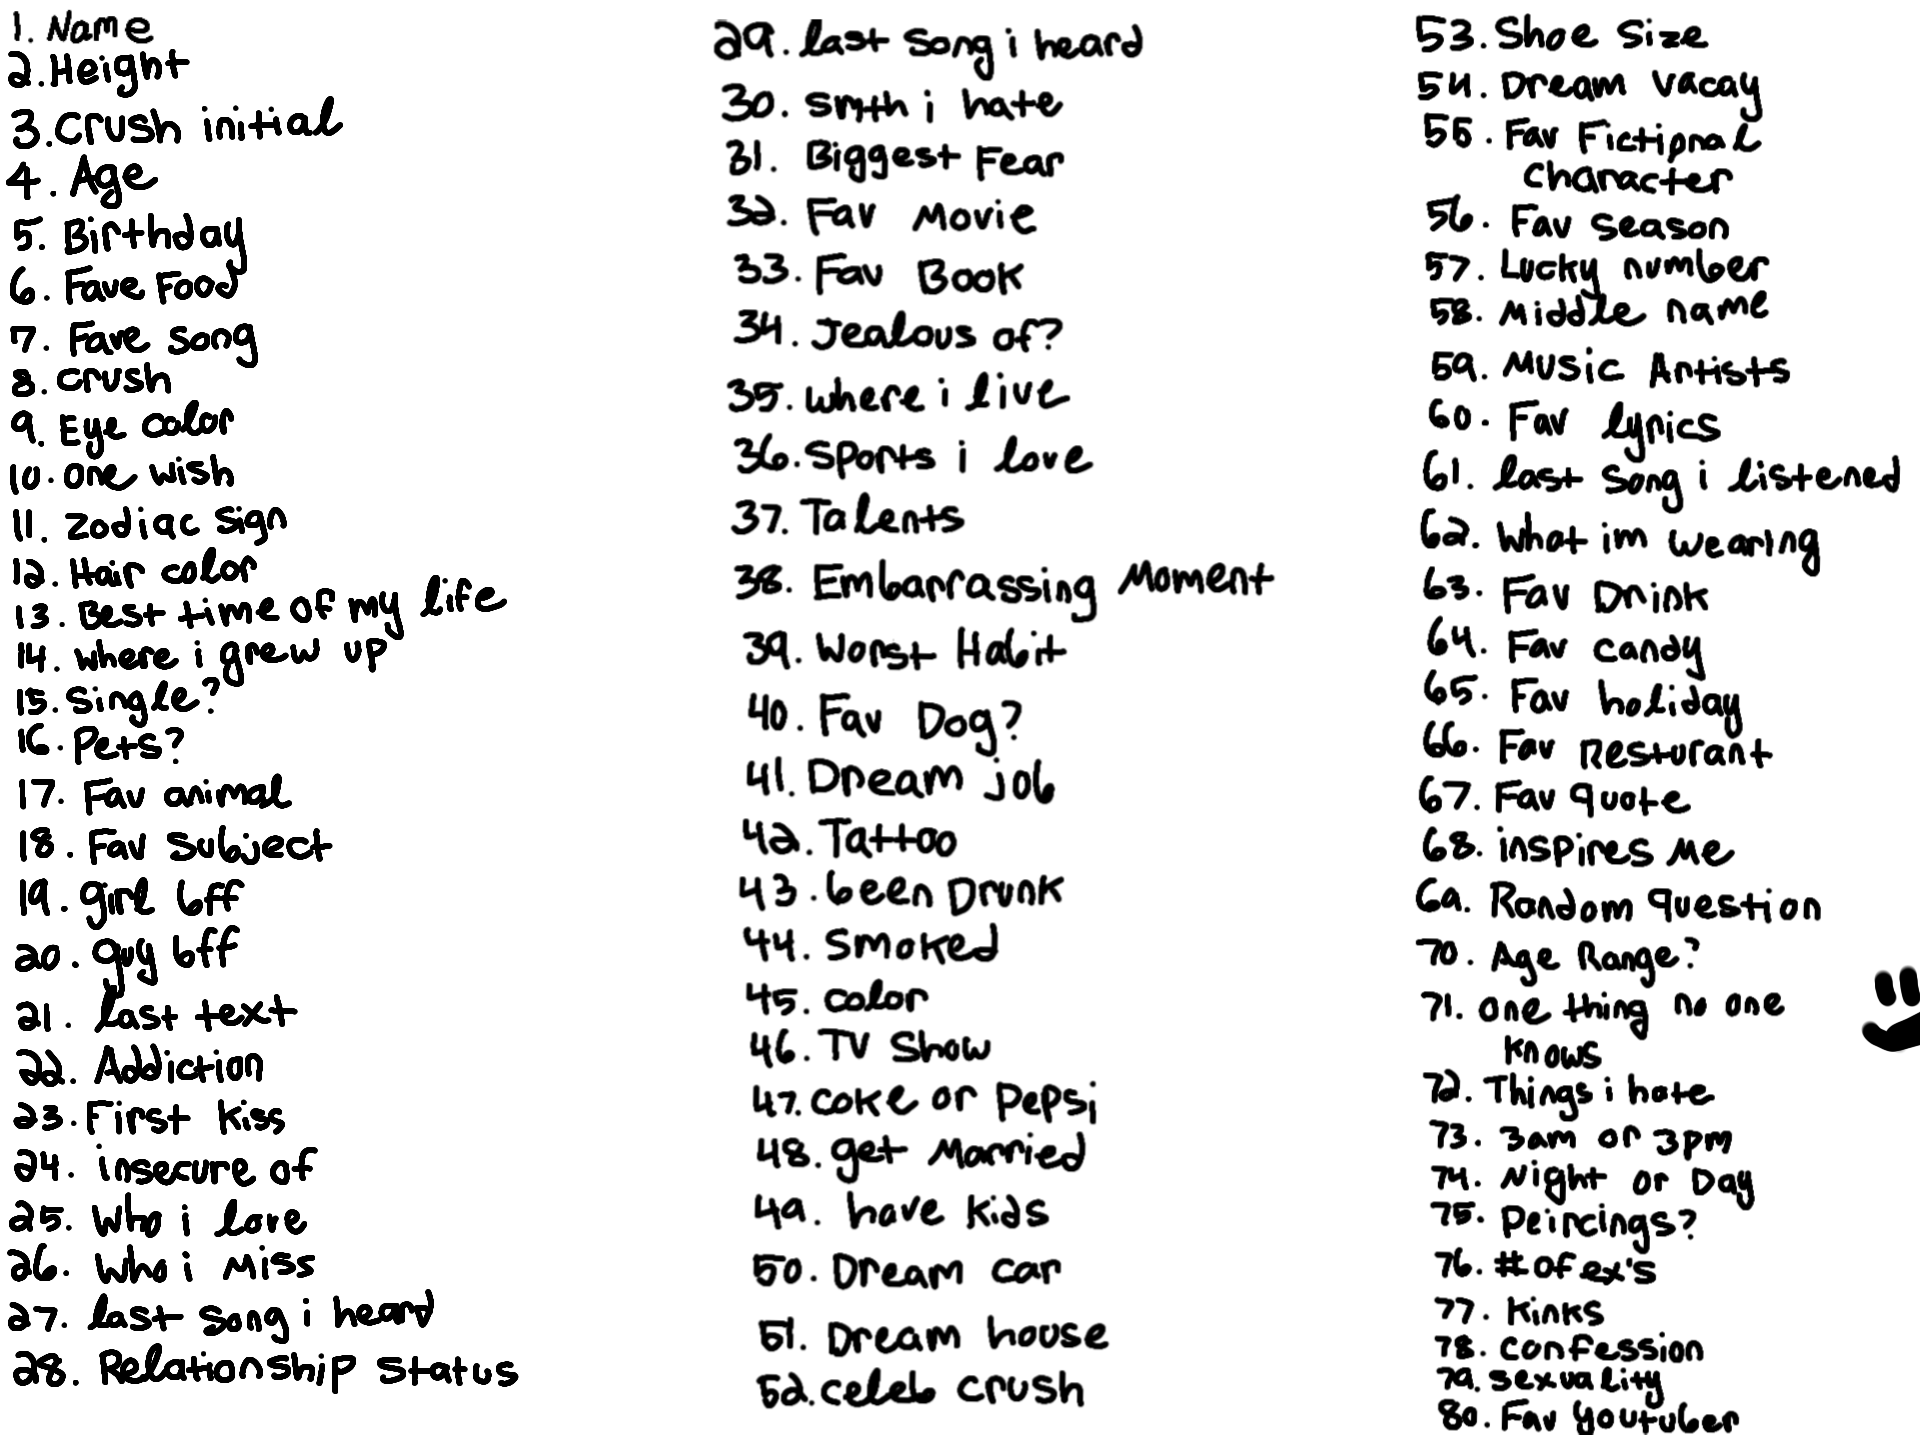 1. Name
2. Height
3. Crush initial
4. Age
5. Birthday
6. Fave Food
7. Fave song
8. crush
9. Eye color
10. one wish
11. zodiac sign
12. Hair color
13. Best time of my life
14. where i grew up
15. single?
16. Pets?
17. Fav animal
18. Fav subject
19. girl bff
20. guy bff
21. last text
22. Addiction
23. First kiss
24. insecure of
25. Who i love
26. Who i Miss
27. last song i heard
28. Relationship status
29. last song i heard
30. smth i hate
31. Biggest Fear
32. Fav Movie
33. Fav Book
34. Jealous of?
35. where i live
36. Sports i love
37. Talents
38. Embarrassing Moment
39. Worst Habit
40. Fav Dog?
41. Dream job
42. Tattoo
43. been Drunk
44. Smoked
45. color
46. TV Show
47. coke or Pepsi
48. get Married
49. have kids
50. Dream car
51. Dream house
52. celeb crush
53. Shoe Size
54. Dream vacay
55. Fav Fictional
Character
56. Fav season
57. Lucky number
58. Middle name
59. Music Artists
60. Fav lyrics
61. last song i listened
62. What im wearing
63. Fav Drink
64. Fav candy
65. Fav holiday
66. Fav Resturant
67. Fav quote
68. inspires Me
69. Random question
70. Age Range?
71. one thing no one
knows
72. Things i hate
73. 3am or 3pm
74. Night or Day
75. Peircings?
76. # of ex's
77. Kinks
78. confession
79. sexuality
80. Fav Youtuber